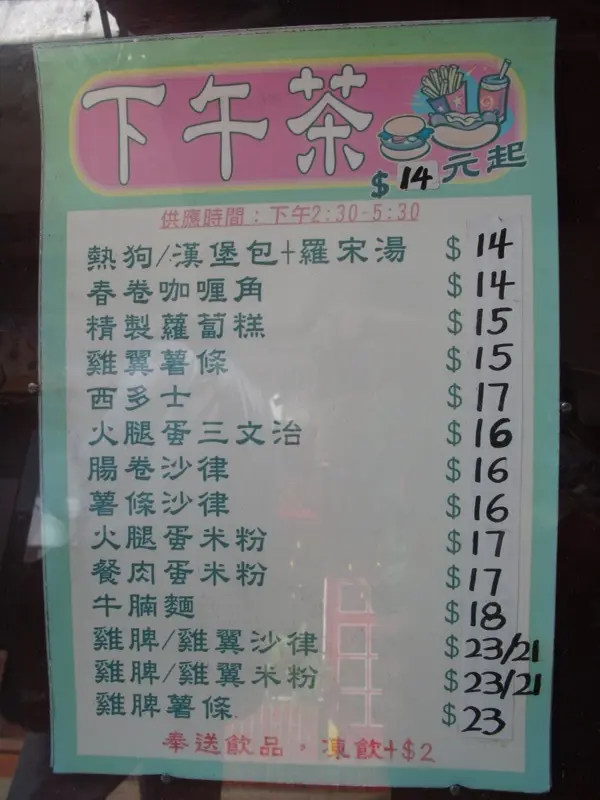 下午茶
$14元起
供應時間：下午2:30-5:30
熱狗/漢堡包+羅宋湯 $14
春卷咖喱角 $14
精製蘿蔔糕 $15
雞翼薯條 $15
西多士 $17
火腿蛋三文治 $16
腸卷沙律 $16
薯條沙律 $16
火腿蛋米粉 $17
餐肉蛋米粉 $17
牛腩麵 $18
雞脾/雞翼沙律 $23/21
雞脾/雞翼米粉 $23/21
雞脾薯條 $23
奉送飲品，凍飲+$2